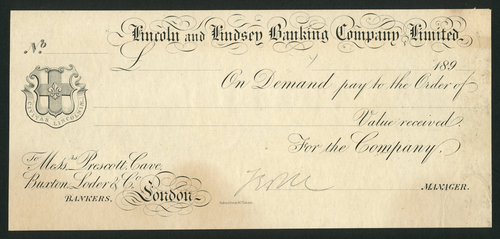 Lincoln and Lindsey Banking Company Limited.
No
£
189
On Demand pay to the Order of
Value received.
For the Company.
CIVITAS LINCOLNIA
To Messrs. Prescott, Cave,
Buxton, Loder & Co.
BANKERS, London
MANAGER.